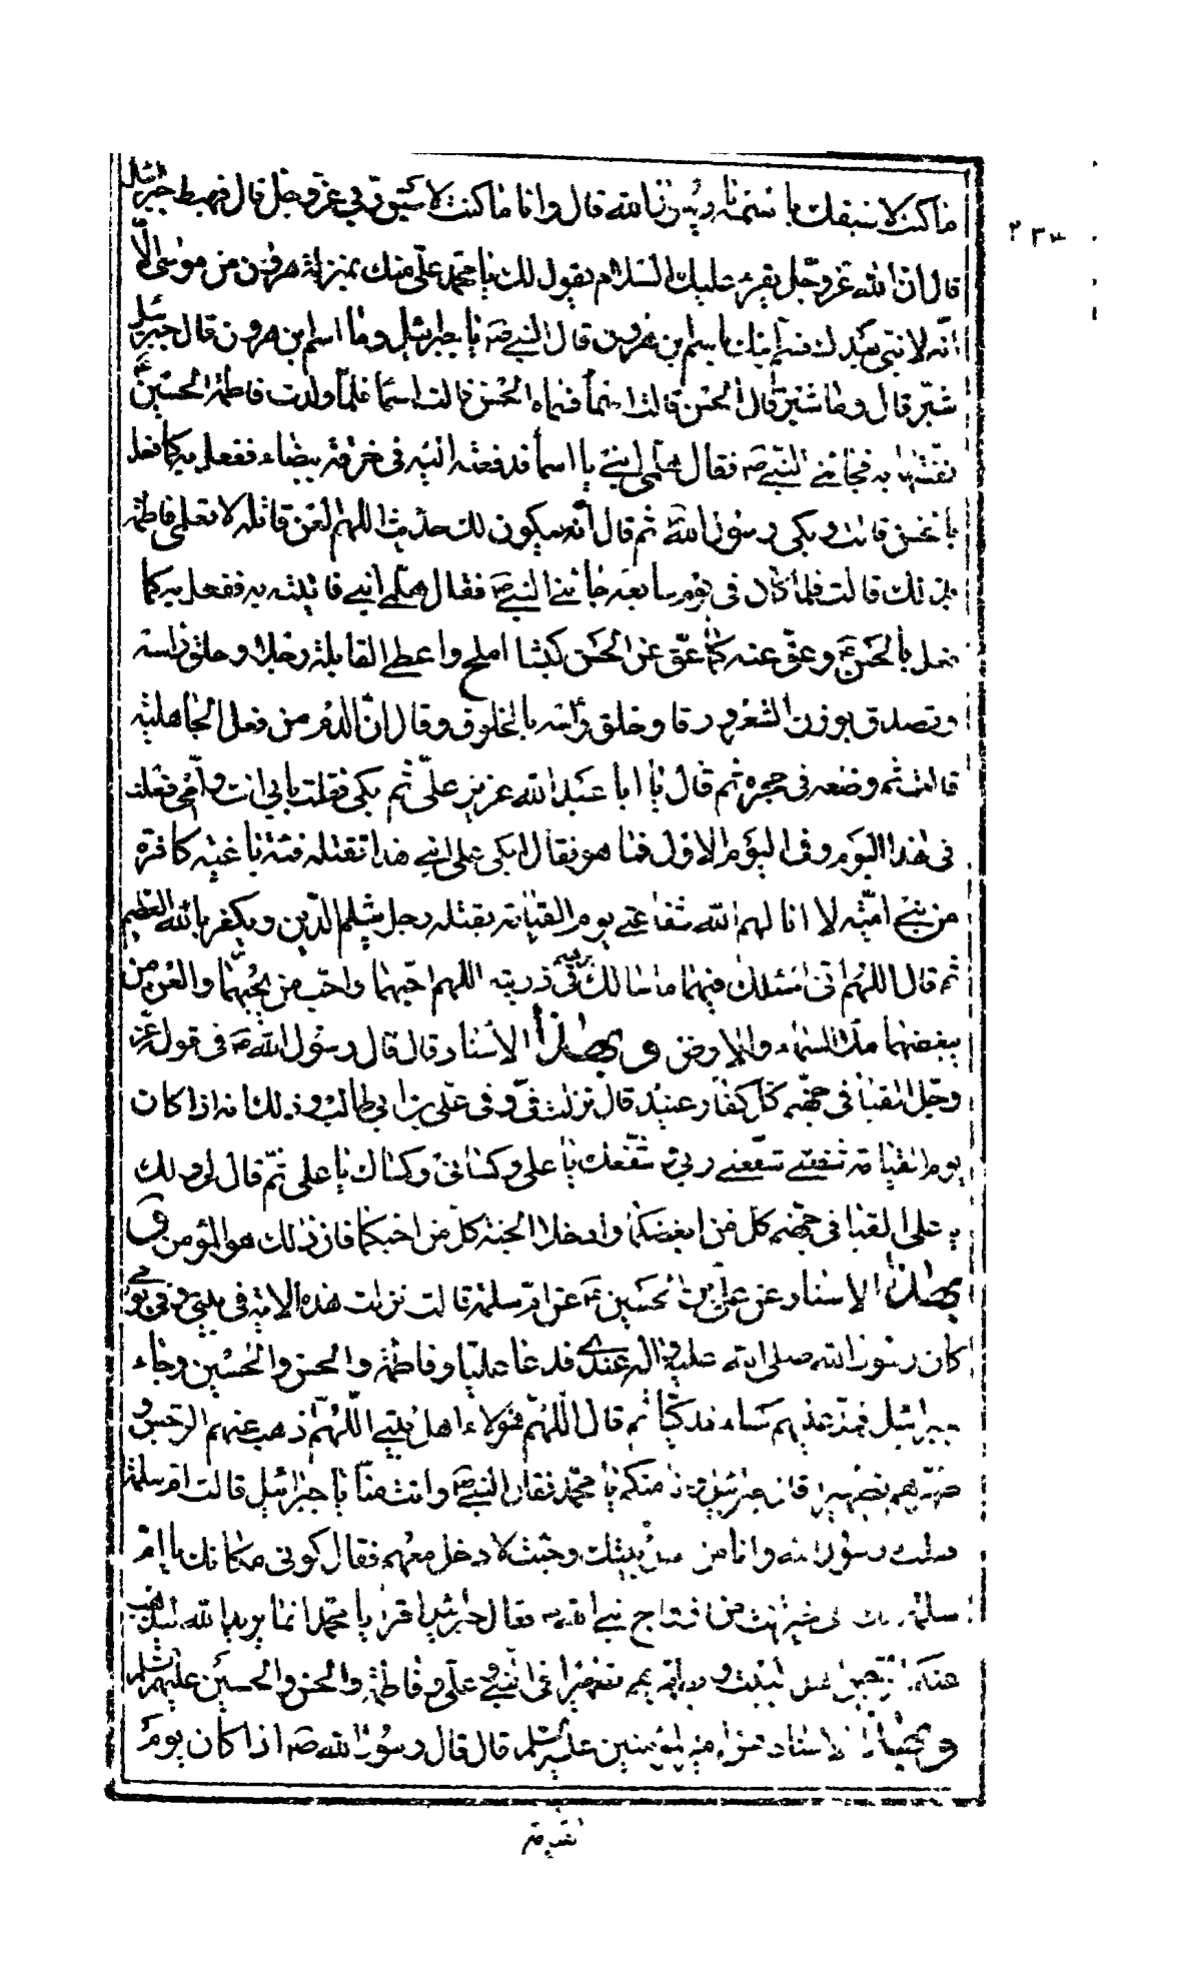 ما كنت لاسبقك باسمه يا رسول الله قال وانا ما كنت لاسبق ربي عز وجل قال فهبط جبرئيل
قال ان الله عز وجل يقرء عليك السلام يقول لك يا محمد علي منك بمنزلة هرون من موسى الا
انه لا نبي بعدك فسم ابنك باسم ابن هرون قال النبي ص يا جبرئيل وما اسم ابن هرون قال جبرئيل
شبر قال وما شبر قال الحسن قالت اسما فسماه الحسن قالت اسما فلما ولدت فاطمة الحسين ع
نفستها به فجائني النبي ص فقال هلمي ابني يا اسما فدفعته اليه في خرقة بيضاء ففعل به كما فعل
بالحسن قالت وبكى رسول الله ثم قال انه سيكون لك حديث اللهم العن قاتله لا تعلمي فاطمة
بذلك قالت فلما كان في يوم سابعه جائني النبي ص فقال هلمي ابني فاتيته به ففعل به كما
فعل بالحسن ع وعق عنه كما عق عن الحسن كبشا املح واعطى القابلة رجلا وحلق راسه
وتصدق بوزن الشعر ورقا وخلق راسه بالخلوق وقال ان الدم من فعل الجاهلية
قالت ثم وضعه في حجره ثم قال يا ابا عبد الله عزيز علي ثم بكى فقلت بابي انت وامي فعلت
في هذا اليوم وفي اليوم الاول فما هو فقال ابكي على ابني هذا تقتله فئة باغية كافرة
من بني امية لا انالهم الله شفاعتي يوم القيامة يقتله رجل يثلم الدين ويكفر بالله العظيم
ثم قال اللهم اني اسئلك فيهما ما سالك ابرهيم في ذريته اللهم احبهما واحب من يحبهما والعن من
يبغضهما ملء السماء والارض وبهذا الاسناد قال قال رسول الله ص في قول عز
وجل القيا في جهنم كل كفار عنيد قال نزلت في وفي علي بن ابي طالب وذلك انه اذا كان
يوم القيامة شفعني ربي وشفعك يا علي وكساني وكساك يا علي ثم قال لي ولك
يا علي القيا في جهنم كل من ابغضكما وادخلا الجنة كل من احبكما فان ذلك هو المؤمن و
بهذا الاسناد عن علي بن الحسين ع عن ام سلمة قالت نزلت هذه الاية في بيتي وفي يومي
كان رسول الله صلى الله عليه واله عندي فدعا عليا وفاطمة والحسن والحسين وجاء
جبرئيل فمد عليهم كساء فدكيا ثم قال اللهم هؤلاء اهل بيتي اللهم اذهب عنهم الرجس و
طهرهم تطهيرا قال جبرئيل وانا منكم يا محمد فقال النبي ص وانت منا يا جبرئيل قالت ام سلمة
فقلت يا رسول الله وانا من اهل بيتك وجئت لادخل معهم فقال كوني مكانك يا ام
سلمة انك الى خير انت من ازواج نبي الله فقال جبرئيل اقرا يا محمد انما يريد الله ليذهب
عنكم الرجس اهل البيت ويطهركم تطهيرا في النبي وعلي وفاطمة والحسن والحسين عليهم السلام
وبهذا الاسناد عن امير المؤمنين عليه السلام قال قال رسول الله ص اذا كان يوم
القيمة
٢٣٣